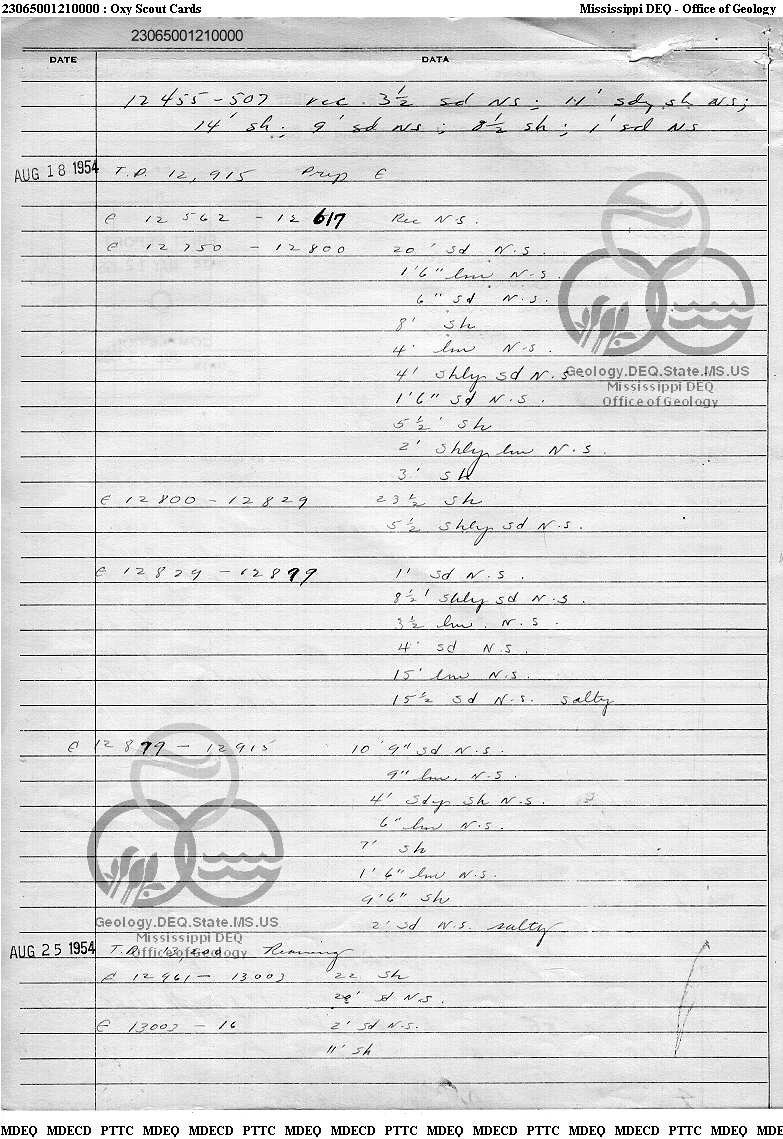 23065001210000 : Oxy Scout Cards Mississippi DEQ - Office of Geology
23065001210000
DATE DATA
12455-507 rec. 3½ sd NS; 14' sdy sh NS;
14' sh; 9' sd NS; 8½ sh; 1' sd NS
AUG 18 1954 T.D. 12,915 Prep C
C 12562 - 12617 Rec N.S.
C 12750 - 12800 20' sd N.S.
1'6" lm N.S.
6" sd N.S.
8' sh
4' lm N.S.
4' Shly sd N.S.
Geology.DEQ.State.MS.US
Mississippi DEQ
Office of Geology
1'6" sd N.S.
5½' sh
2' Shly lm N.S.
3' sh
C 12800 - 12829 23½ sh
5½ shly sd N.S.
C 12829 - 12879 1' sd N.S.
8½' shly sd N.S.
3½ lm. N.S.
4' sd N.S.
15' lm N.S.
15½ sd N.S. salty
C 12879 - 12915 10'9" sd N.S.
9" lm. N.S.
4' Sdy sh N.S.
6" lm N.S.
7' sh
1'6" lm N.S.
9'6" sh
2' sd N.S. salty
Geology.DEQ.State.MS.US
Mississippi DEQ
Office of Geology
AUG 25 1954 T.D. 13,200 Reaming
C 12961 - 13003 22 sh
20' sd N.S.
C 13003 - 16 2' sd N.S.
11' sh
MDEQ MDECD PTTC MDEQ MDECD PTTC MDEQ MDECD PTTC MDEQ MDECD PTTC MDEQ MDECD PTTC MDEQ MDE